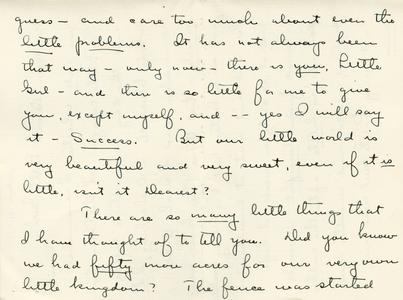 guess - and care too much about even the
little problems. It has not always been
that way - only now - there is you, Little
Girl - and there is so little for me to give
you, except myself, and -- yes I will say
it - Success. But our little world is
very beautiful and very sweet, even if it is
little, isn't it Dearest?
There are so many little things that
I have thought of to tell you. Did you know
we had fifty more acres for our very own
little kingdom? The fence was started